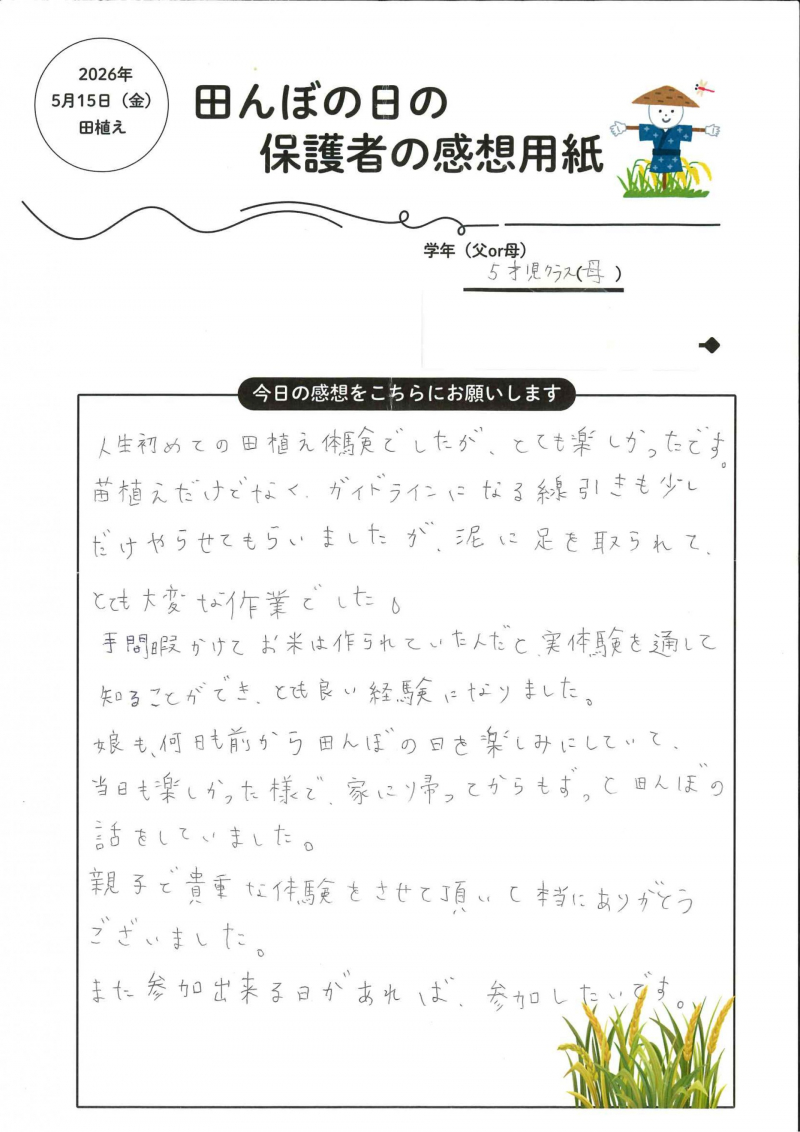 2026年
5月15日（金）
田植え
田んぼの日の
保護者の感想用紙
学年（父or母）
5才児クラス(母)
今日の感想をこちらにお願いします
人生初めての田植え体験でしたが、とても楽しかったです。
苗植えだけでなく、ガイドラインになる線引きも少し
だけやらせてもらいましたが、泥に足を取られて、
とても大変な作業でした。
手間暇かけてお米は作られていたんだと、実体験を通して
知ることができ、とても良い経験になりました。
娘も、何日も前から田んぼの日を楽しみにしていて、
当日も楽しかった様で、家に帰ってからもずっと田んぼの
話をしていました。
親子で貴重な体験をさせて頂いて本当にありがとう
ございました。
また参加出来る日があれば、参加したいです。